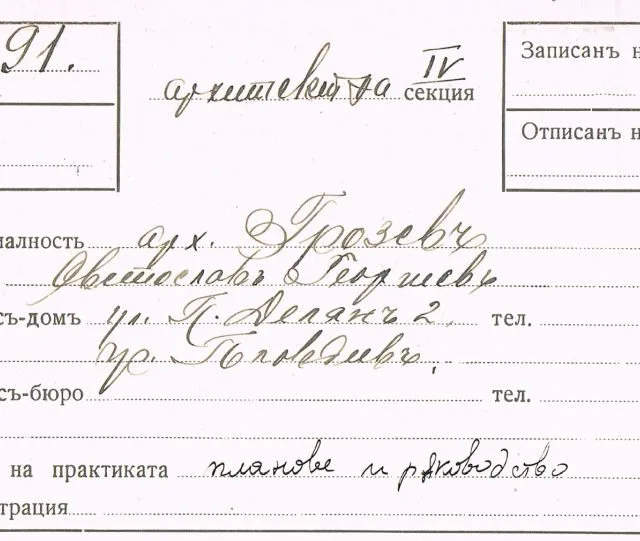 91.
IV
архитектна секция
Записанъ н
Отписанъ н
иалность арх. Грозевъ
Светославъ Георгиевъ
съ-домъ ул. П. Делянъ 2. тел.
гр. Пловдивъ,
съ-бюро тел.
на практиката планове и рѫководство
трация